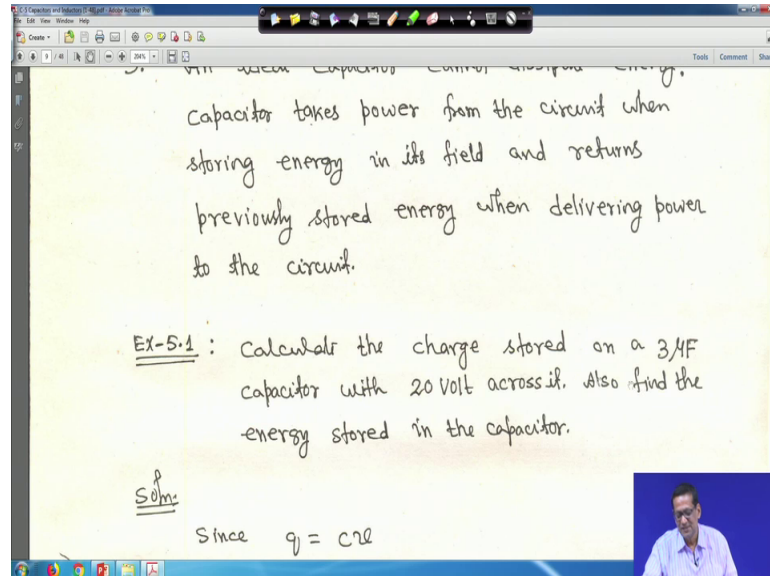 C-5 Capacitors and Inductors (1-48).pdf - Adobe Acrobat Pro
File Edit View Window Help
Create
9 / 48
204%
Tools Comment
5. An ideal capacitor cannot dissipate energy.
capacitor takes power from the circuit when
storing energy in its field and returns
previously stored energy when delivering power
to the circuit.
EX-5.1 : Calculate the charge stored on a 3 μF
capacitor with 20 Volt across it. Also find the
energy stored in the capacitor.
Soln.
Since q = cv